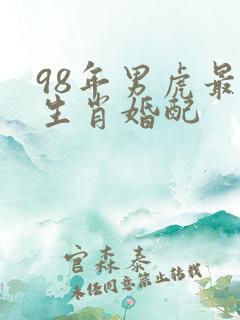 98年男虎最
生肖婚配
官森泰
未经同意禁止转载